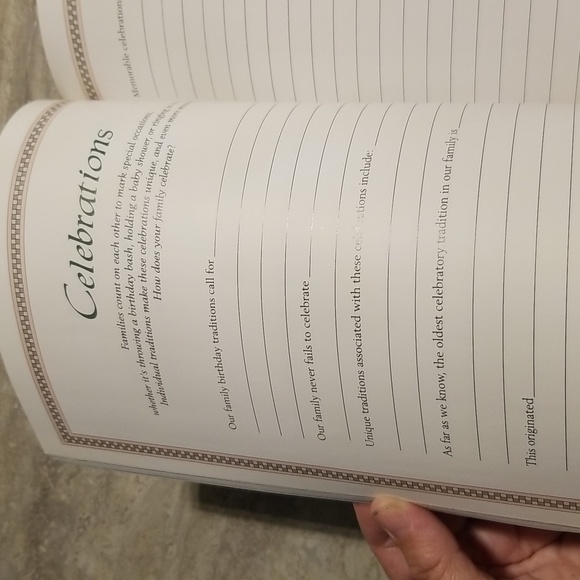 Memorable celebration
Celebrations
Families count on each other to mark special occasions,
whether it's throwing a birthday bash, holding a baby shower, or ringing
Individual traditions make these celebrations unique, and even more
How does your family celebrate?
Our family birthday traditions call for
Our family never fails to celebrate
Unique traditions associated with these celebrations include:
As far as we know, the oldest celebratory tradition in our family is
This originated